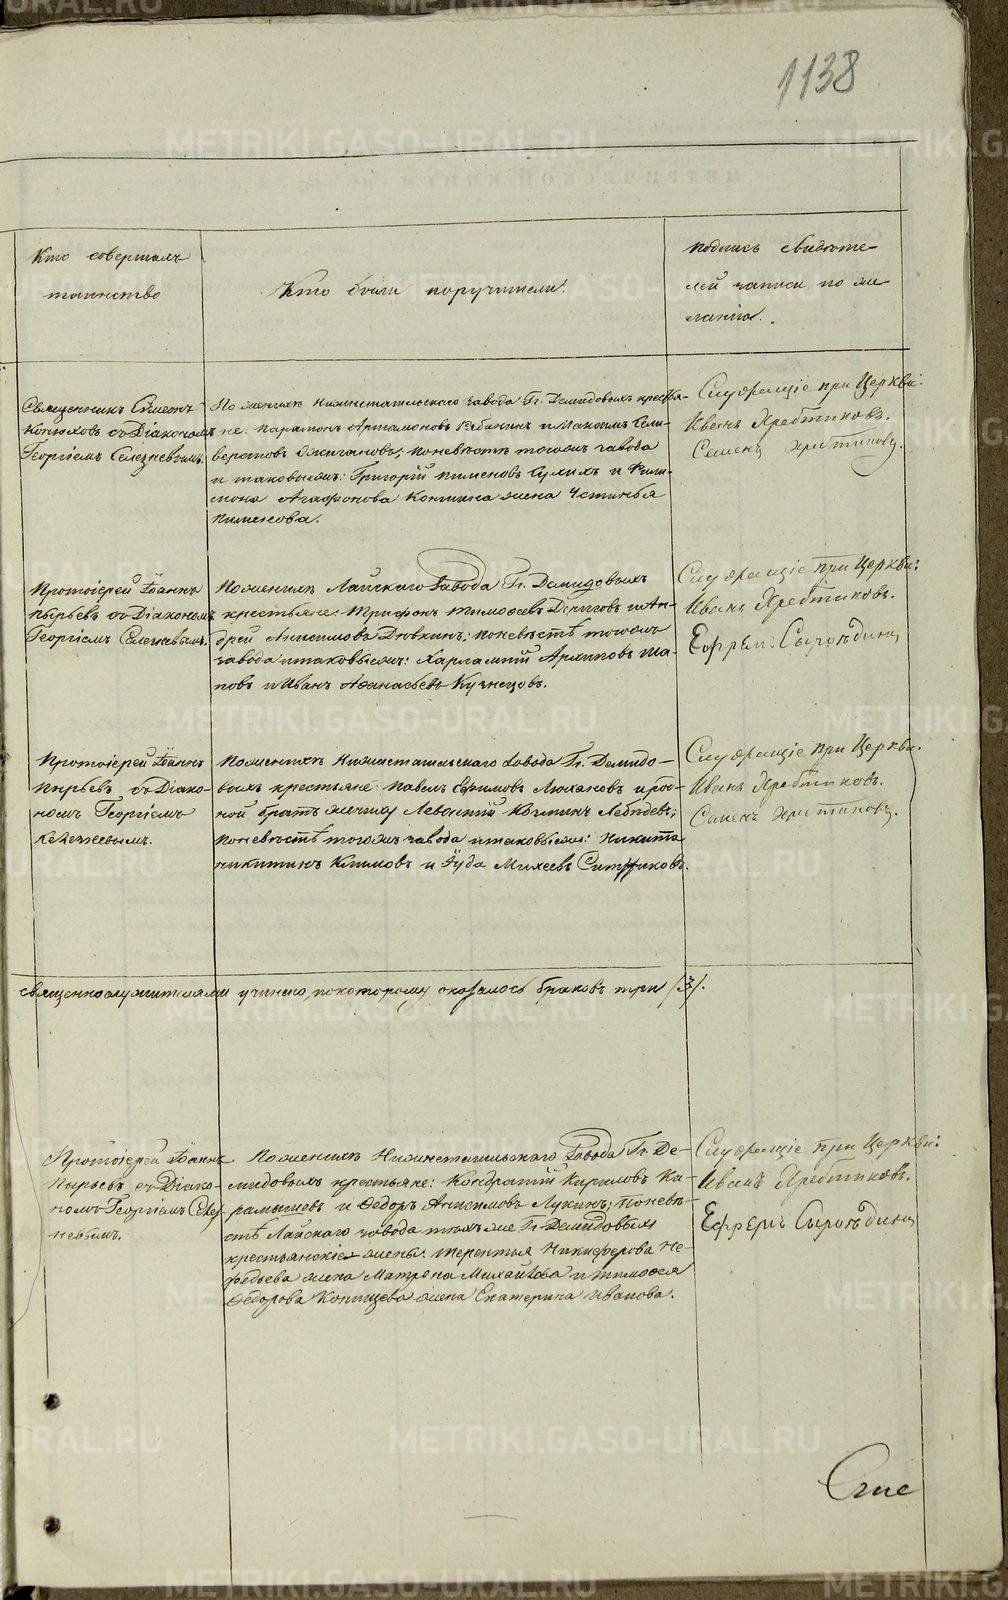 1138
Кто совершалъ
таинство
Кто были поручители.
подпись свидѣте-
лей записи по же
ланію.
Священникъ Симеонъ
Конюховъ съ Діакономъ
Георгіемъ Селезневымъ.
По женихѣ Нижнетагильскаго завода Гг. Демидовыхъ крестья-
не: Парамонъ Артамоновъ и Максимъ Сели-
верстовъ Ожегановъ; поневѣстѣ тогожъ завода
и таковыежъ: Григорій Пименовъ Сухихъ и Фили-
мона Агафонова Копшина жена Устинья
Пименова.
Служащіе при Церкви:
Иванъ Хребтиковъ.
Семенъ Хребтиковъ.
Протоіерей Іоаннъ
Пырьевъ съ Діакономъ
Георгіемъ Селезневымъ.
Поженихѣ Лайскаго Завода Гг. Демидовыхъ
крестьяне: Трифонъ Тимофеевъ и Ан-
дрей Анисимовъ Дювкинъ; поневѣстѣ тогожъ
завода итаковыежъ: Харлампій Архиповъ Ша-
повъ и Иванъ Афанасьевъ Кузнецовъ.
Служащіе при Церкви:
Иванъ Хребтиковъ.
Ефремъ Сыроѣдинъ
Протоіерей Іоаннъ
Пырьевъ съ Діако-
номъ Георгіемъ
Селезневымъ.
Поженихѣ Нижнетагильскаго Завода Гг. Демидо-
выхъ крестьяне: Павелъ Ефимовъ Люхановъ и род-
ной братъ жениху Леонтій Козминъ Лебедевъ;
поневѣстѣ тогожъ завода итаковыежъ: Никита
Никитинъ Климовъ и Іуда Михеевъ Ситниковъ.
Служащіе при Церкви:
Иванъ Хребтиковъ.
Семенъ Хребтиковъ.
священнослужителями учинено, покоторому оказалось браковъ три /3/.
Протоіерей Іоаннъ
Пырьевъ съ Діако-
номъ Георгіемъ Селез-
невымъ.
Поженихѣ Нижнетагильскаго Завода Гг. Де-
мидовыхъ крестьяне: Кондратій Кириловъ Ка-
рамышевъ и Федоръ Анисимовъ Лукинъ; Поневѣ-
стѣ Лайскаго завода тѣхъ же Гг. Демидовыхъ
крестьянскіе жены: Терентья Никифорова Не-
федьева жена Матрена Михайлова и Тимофея
Федорова Копищева жена Екатерина Иванова.
Служащіе при Церкви:
Иванъ Хребтиковъ.
Ефремъ Сыроѣдинъ